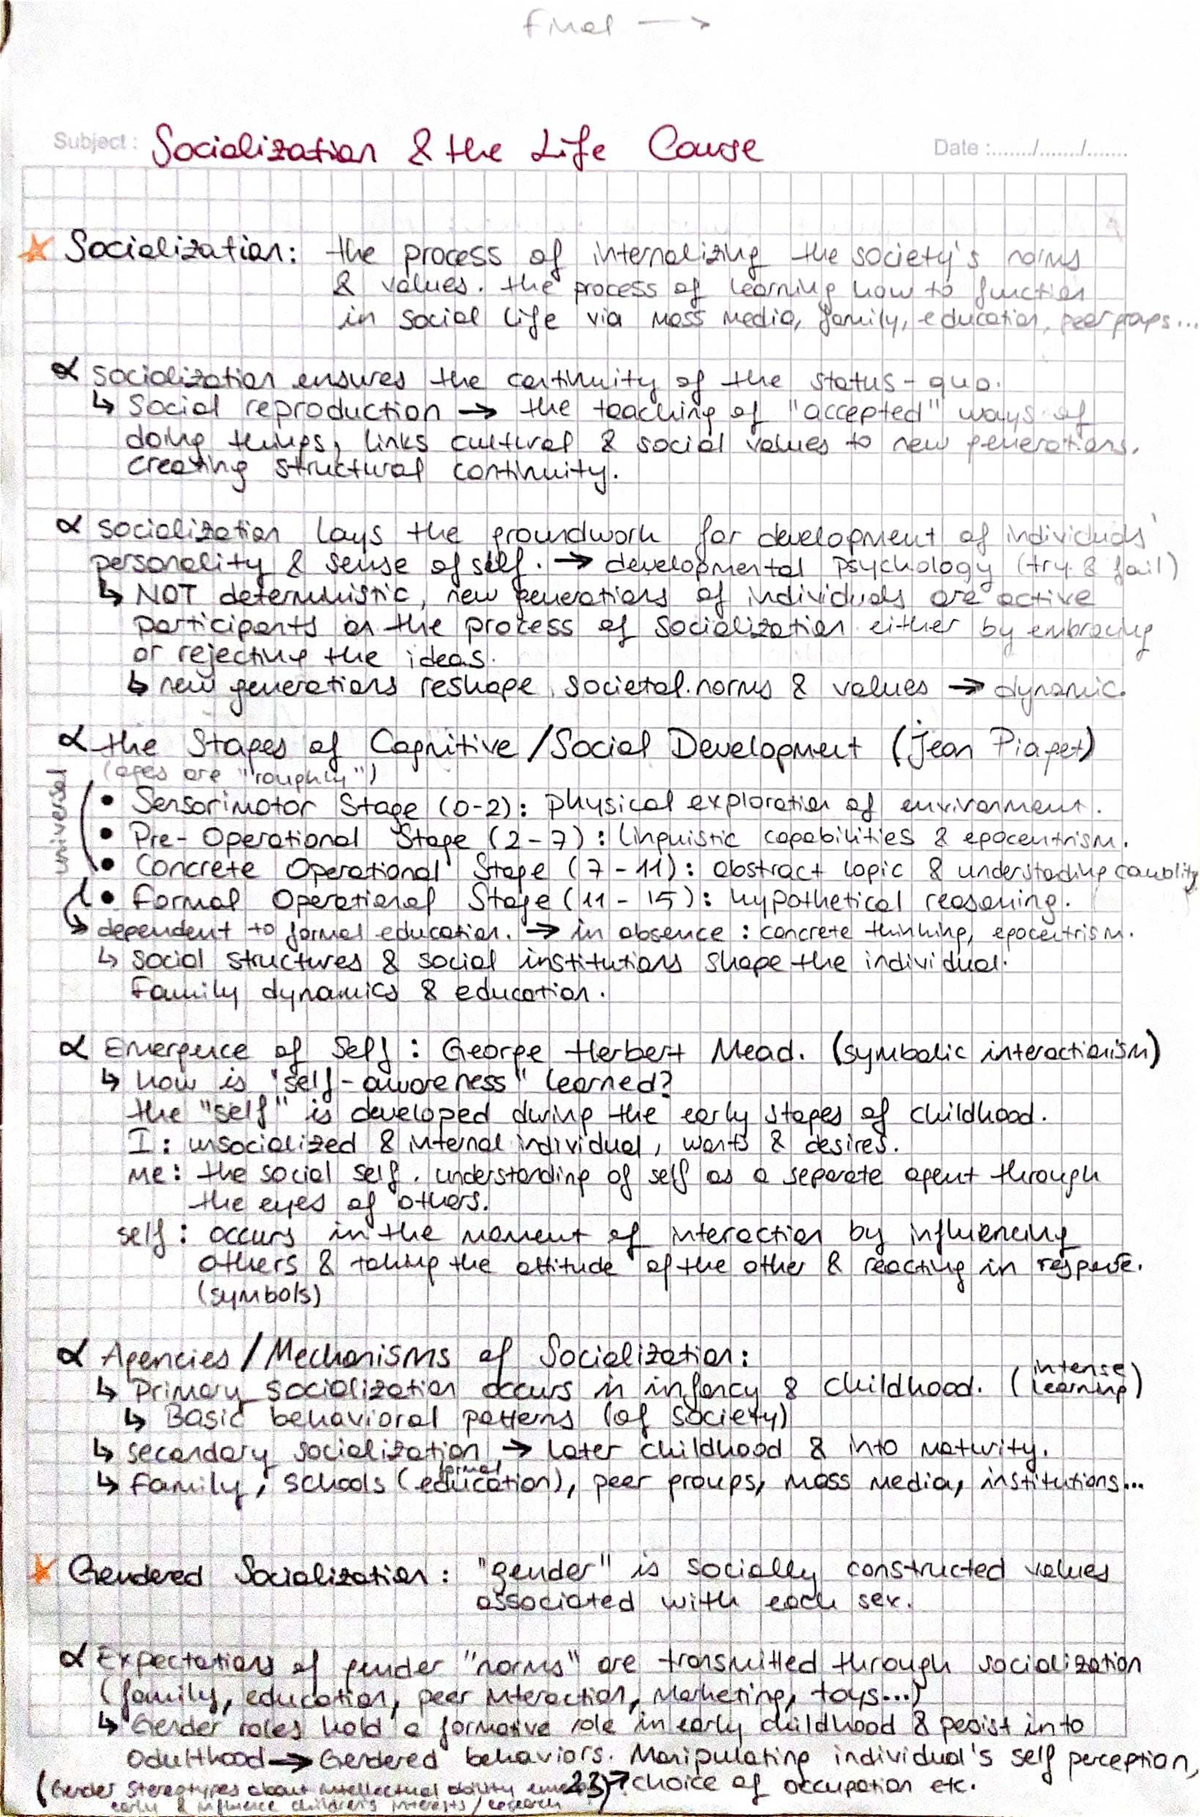 final →
Subject: Socialization & the Life Course Date :......./......./.......
Socialization: the process of internalizing the society's norms
& values. the process of learning how to function
in social life via mass media, family, education, peer groups...
∝ socialization ensures the continuity of the status-quo.
↳ Social reproduction → the teaching of "accepted" ways of
doing things, links cultural & social values to new generations.
creating structural continuity.
∝ socialization lays the groundwork for development of individuals'
personality & sense of self. → developmental psychology (try & fail)
↳ NOT deterministic, new generations of individuals are active
participants on the process of socialization either by embracing
or rejecting the ideas.
↳ new generations reshape societal norms & values → dynamic.
∝ the Stages of Cognitive/Social Development (Jean Piaget)
(ages are "roughly")
universal
• Sensorimotor Stage (0-2): physical exploration of environment.
• Pre-Operational Stage (2-7): linguistic capabilities & egocentrism.
• Concrete Operational Stage (7-11): abstract logic & understanding causality
• Formal Operational Stage (11-15): hypothetical reasoning.
↳ dependent to formal education. → in absence: concrete thinking, egocentrism.
↳ social structures & social institutions shape the individual.
Family dynamics & education.
∝ Emergence of Self: George Herbert Mead. (symbolic interactionism)
↳ how is "self-awareness" learned?
the "self" is developed during the early stages of childhood.
I: unsocialized & internal individual, wants & desires.
me: the social self. understanding of self as a separate agent through
the eyes of others.
self: occurs in the moment of interaction by influencing
others & taking the attitude of the other & reacting in response.
(symbols)
∝ Agencies/Mechanisms of Socialization:
↳ Primary socialization occurs in infancy & childhood. (intense learning)
↳ Basic behavioral patterns (of society)
↳ secondary socialization → later childhood & into maturity.
↳ family, schools (formal education), peer groups, mass media, institutions...
Gendered Socialization: "gender" is socially constructed values
associated with each sex.
∝ Expectations of gender "norms" are transmitted through socialization
(family, education, peer interaction, marketing, toys...)
↳ Gender roles hold a formative role in early childhood & pesist into
adulthood → Gendered behaviors. Manipulating individual's self perception,
choice of occupation etc.
(Gender stereotypes about intellectual ability
early & influence children's interests/research
23